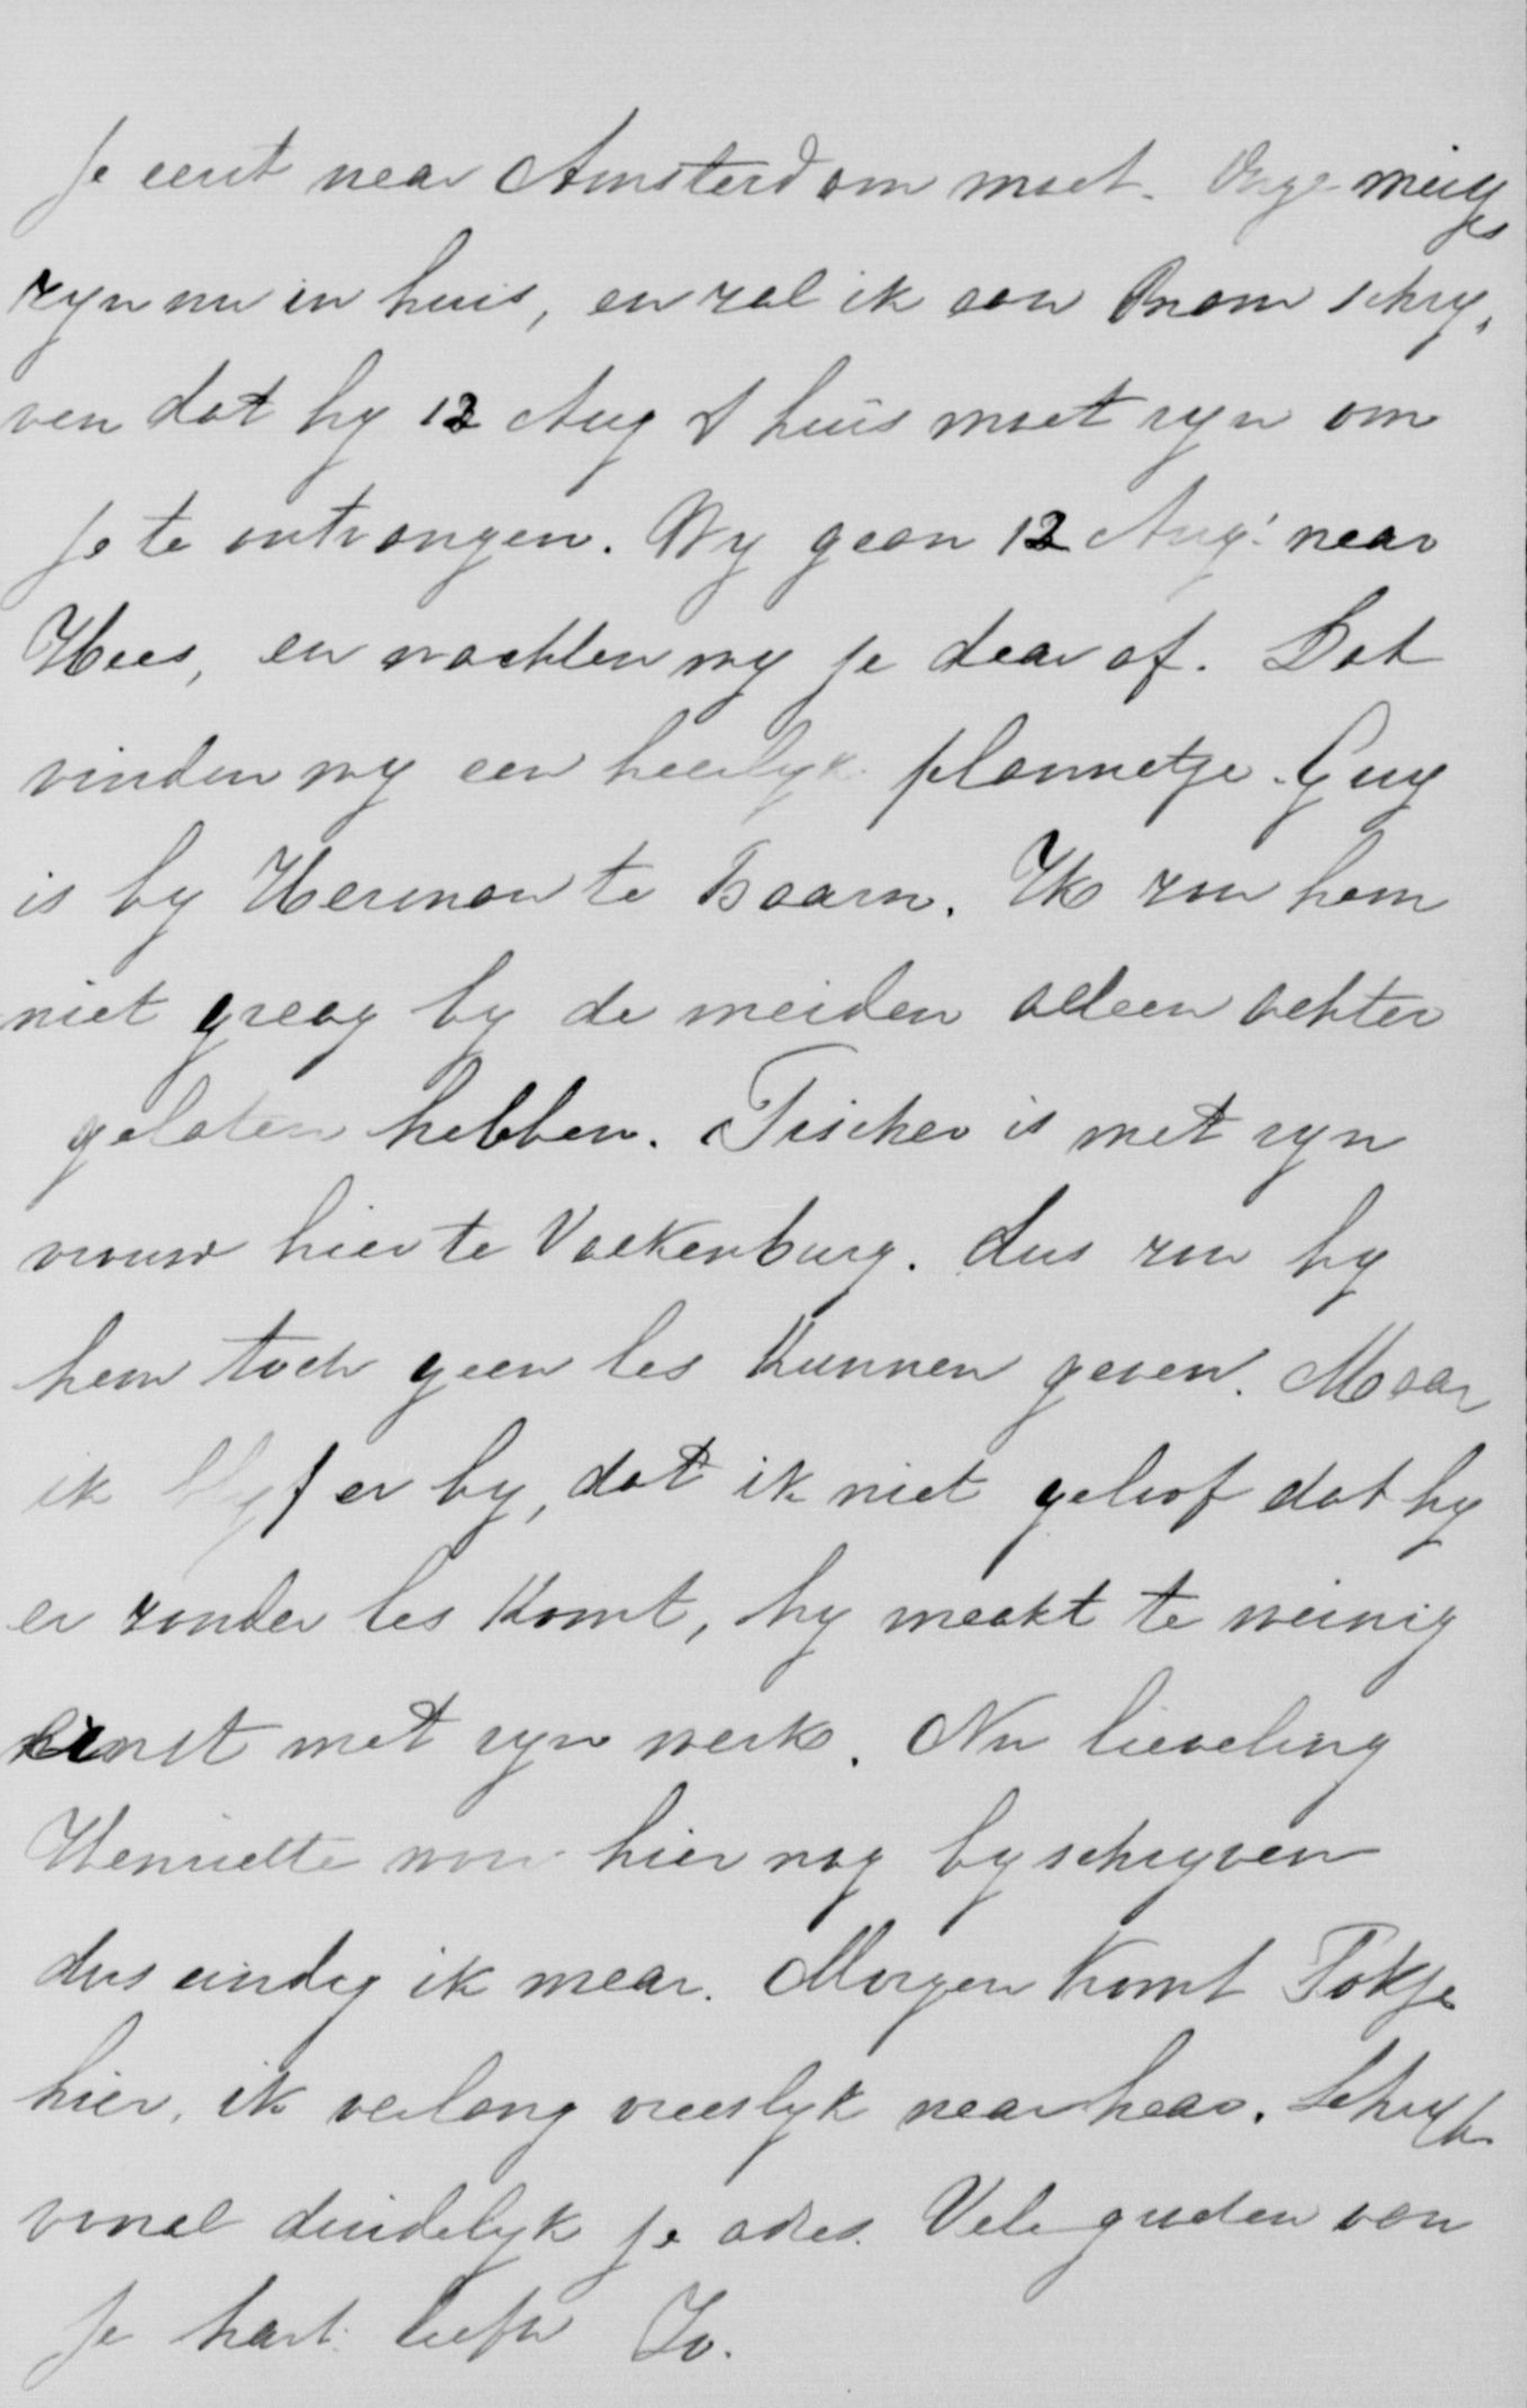 je eerst naar Amsterdam moet. Onze meisjes
zyn nu in huis, en zal ik aan Bram schry,
ven dat hy 12 Aug t huis moet zyn om
je te ontvangen. Wy gaan 12 Aug: naar
Hees, en wachten wy je daar af. Dat
vinden wy een heerlyk plannetje. Guy
is by Herman te Baarn. Ik zou hem
niet graag by de meiden alleen achter
gelaten hebben. Fischer is met zyn
vrouw hier te Valkenburg. dus zou hy
hem toch geen les kunnen geven. Maar
ik blyf er by, dat ik niet geloof dat hy
er zonder les komt, hy maakt te weinig
ernst met zyn werk. Nu lieveling
Henriette wou hier nog byschryven
dus eindig ik maar. Morgen komt Pokje
hier, ik verlang vreeslyk naar haar. Schryf
vooral duidelyk je adres. Vele groeten van
je hart. liefh Jo.